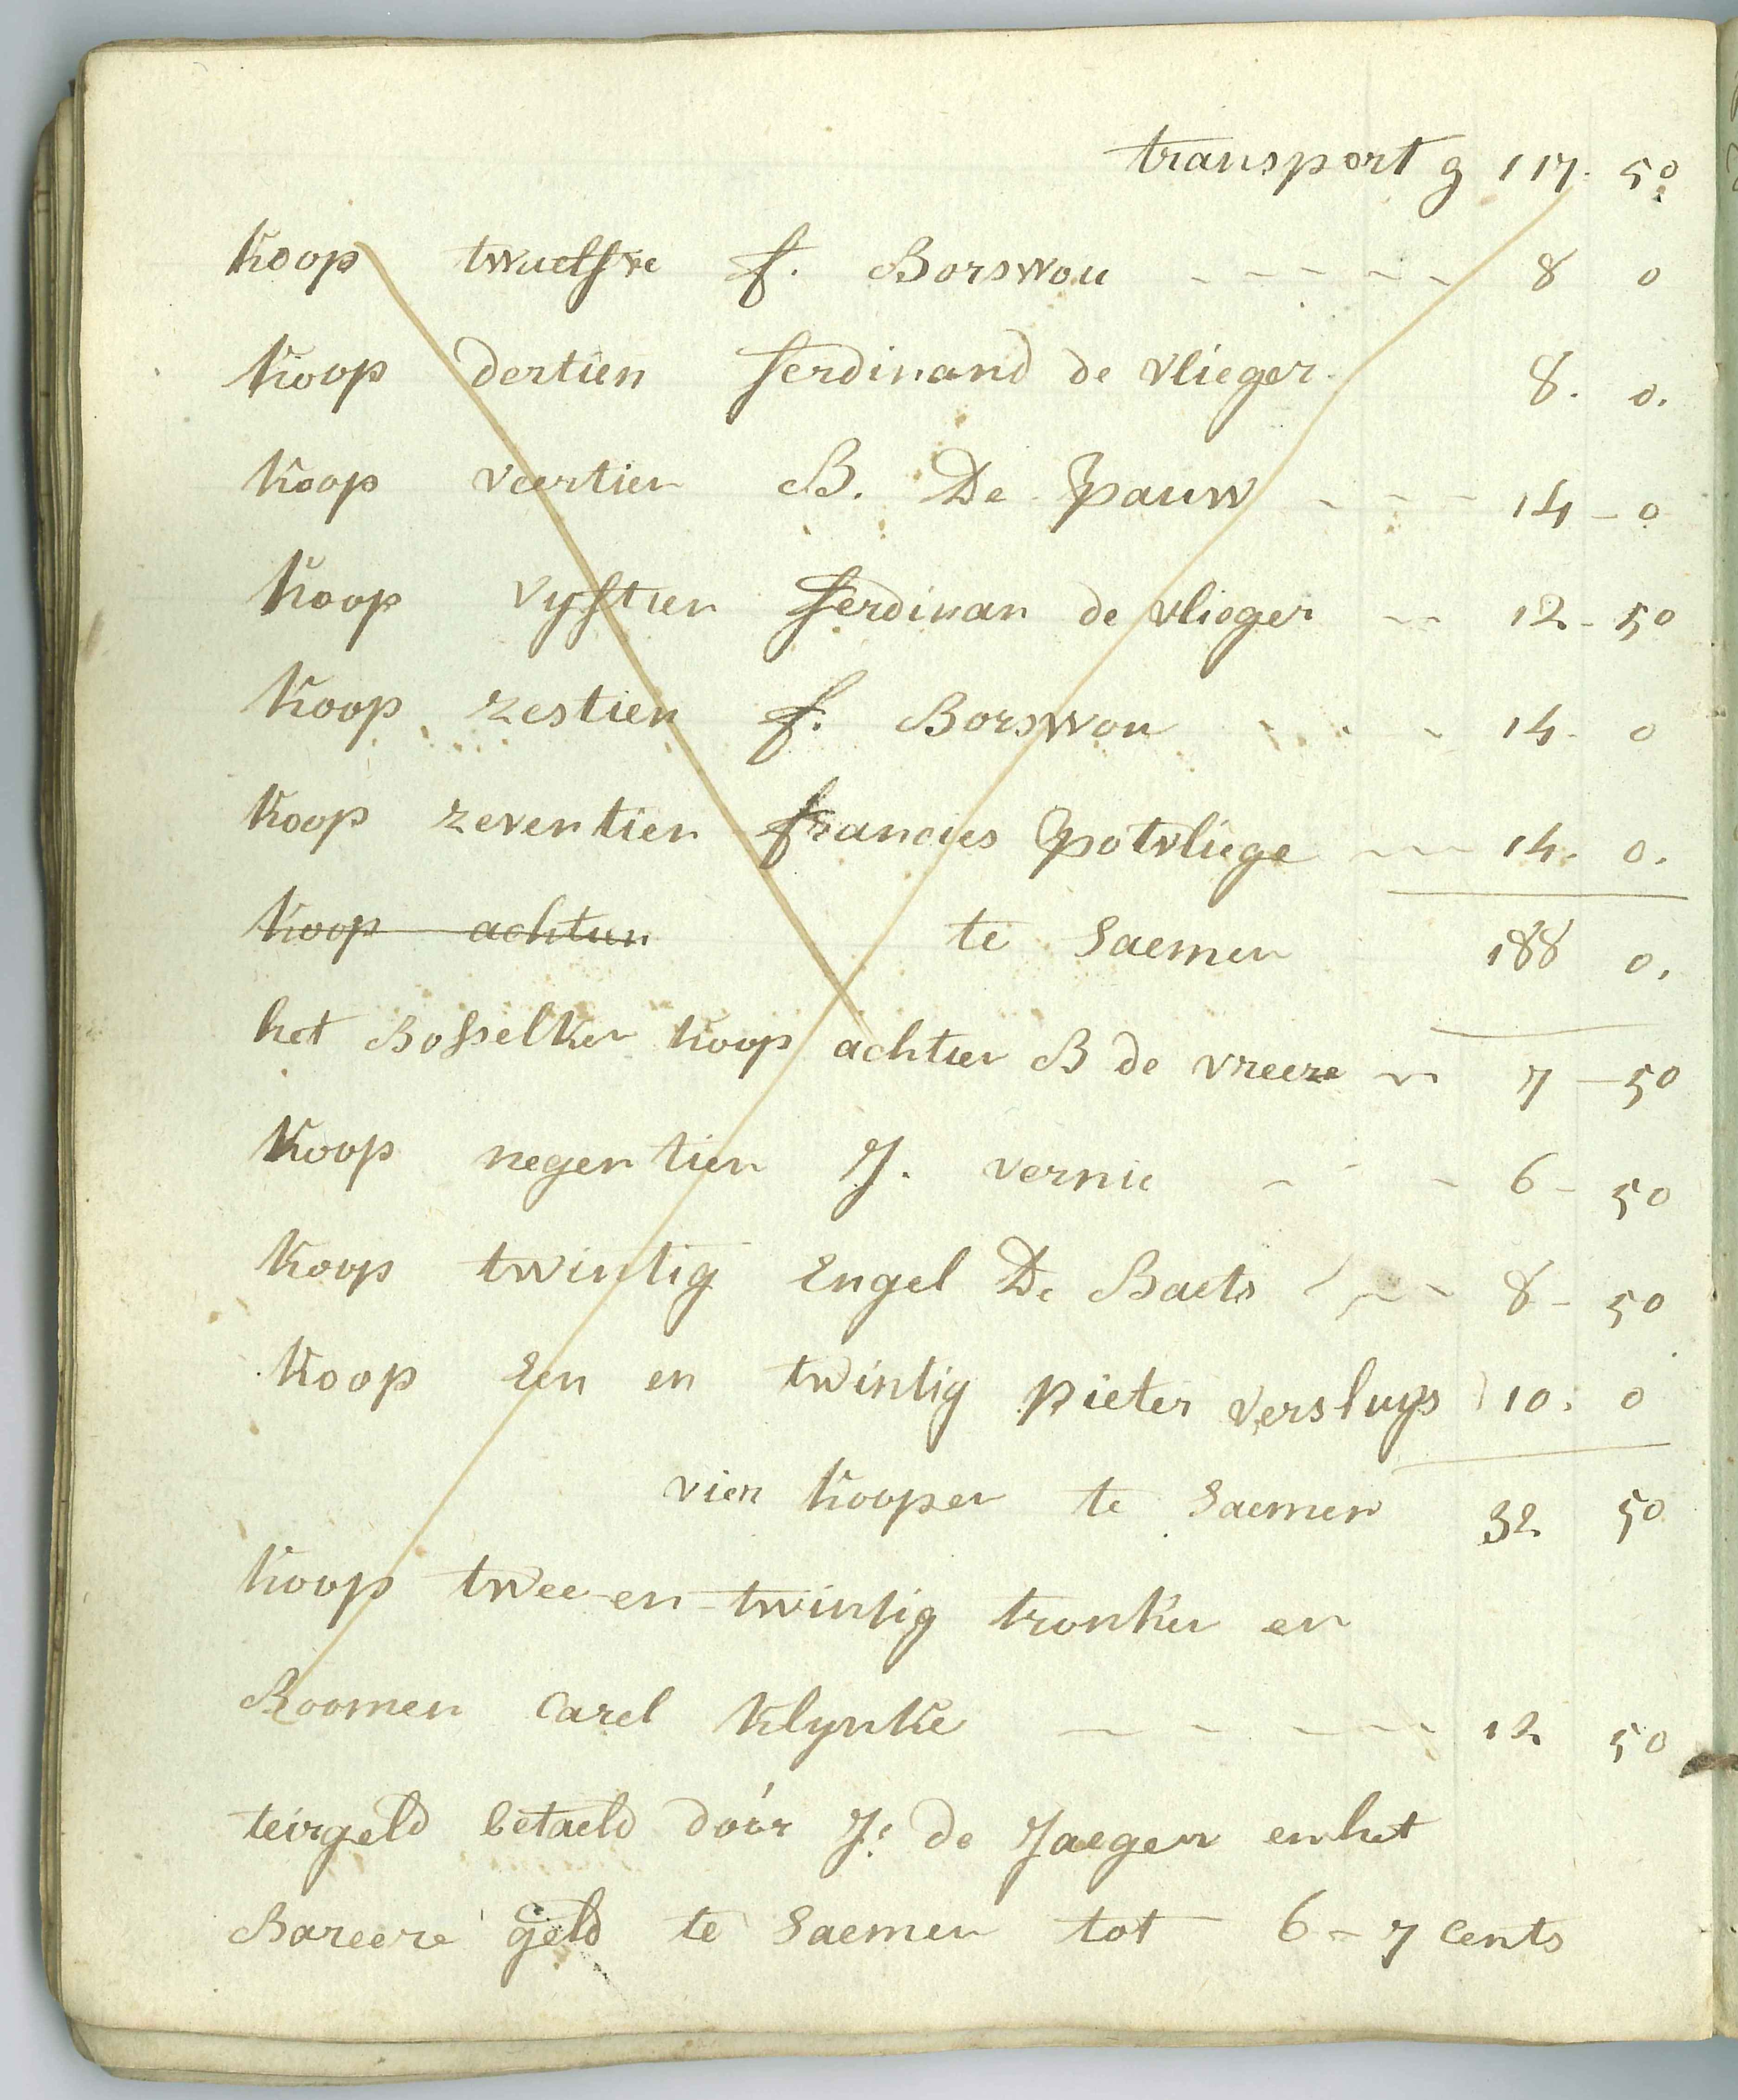 transport g 117. 50
Koop twaelfve f. Borswou 8 0
Koop dertien ferdinand de vlieger. 8. 0.
Koop veertien B. De pauw 14 - 0
Koop vyftien ferdinan de vlieger 12 - 50
Koop zestien f. Borswou 14 - 0
Koop zeventien francies potvliege 14. 0.
Koop achtien te Saemen 188 0.
het Bosselken koop achtien B de vreere 7 - 50
Koop negentien J. vernie 6 - 50
Koop twintig Engel De Baets 8 - 50
Koop Een en twintig pieter versluys 10. 0
vier koopen te Saemen 32 50
Koop twee-en-twintig tronken en
Boomen Carel Klynke 12 50
teirgeld betaeld door J: de Jaeger en het
Bareere geld te Saemen tot 6 - 7 Cents